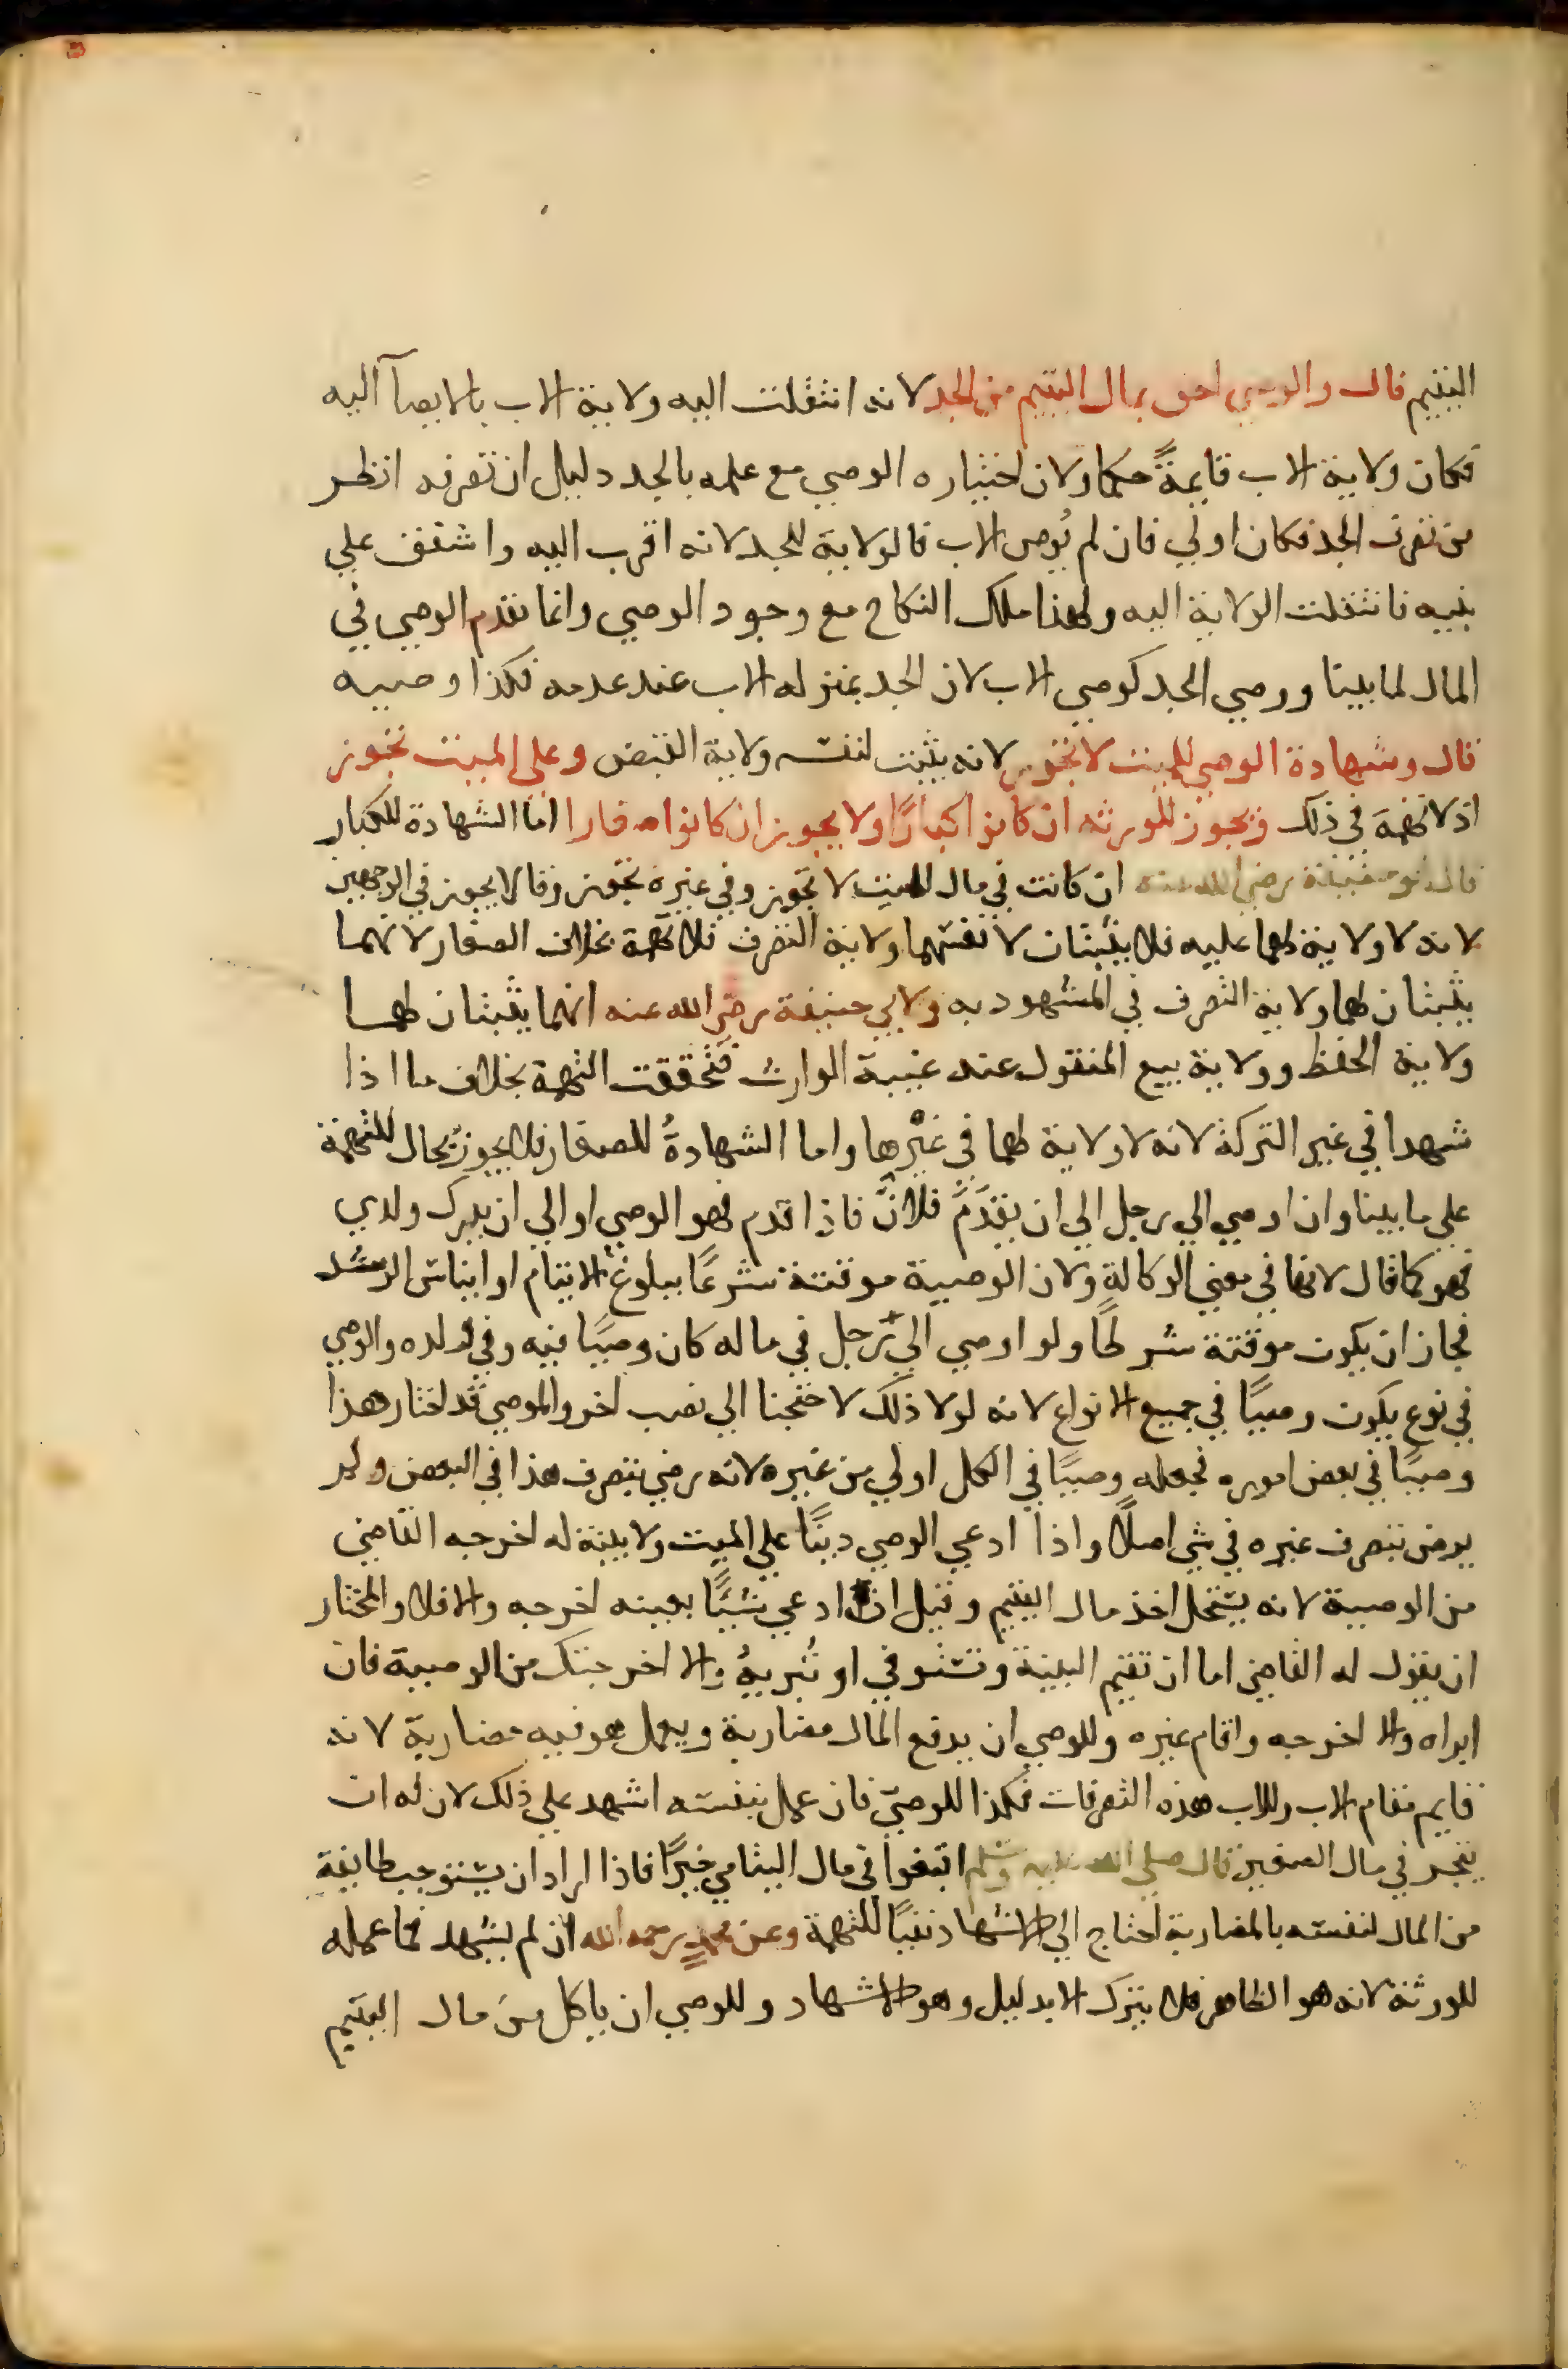 اليتيم قال والوصي احق بمال اليتيم من الجد لانه انتقلت اليه ولاية الاب بالايصآ اليه
فكان ولاية الاب قايمةً حكما ولان اختياره الوصي مع علمه بالجد دليل ان تصرفه انظر
من تصرف الجد فكان اولي فان لم يُوص الاب فالولاية للجد لانه اقرب اليه واشفق علي
بنيه فانتقلت الولاية اليه ولهذا ملك النكاح مع وجود الوصي وانما تقدم الوصي في
المال لما بينا ووصي الجد كوصي الاب لان الجد بمنزله الاب عند عدمه فكذا وصيه
قال وشهادة الوصي للميت لا تجوز لانه يثبت لنفسه ولاية القبض وعلي الميت تجوز
اذ لا تهمة في ذلك وتجوز للورثه ان كانوا كبارًا ولا يجوز ان كانوا صغارا اما الشهادة للكبار
قال ابو حنيفة رضي الله عنه ان كانت في مال الميت لا تجوز وفي غيره تجوز وقالا يجوز في الوجهين
لانه لا ولاية لهما عليه فلا يثبتان لانفسهما ولاية التصرف فلا تهمة بخلاف الصغار لانهما
يثبتان لهما ولاية التصرف في المشهود به ولابي حنيفة رضي الله عنه انهما يثبتان لهما
ولاية الحفظ وولاية بيع المنقول عند غيبة الوارث فتحققت التهمة بخلاف ما اذا
شهدا في غير التركة لانه لا ولاية لهما في غيرها واما الشهادةُ للصغار فلا يجوز بحال للتهمة
علي ما بينا وان اوصي الي رجل الي ان يقدَمَ فلانٌ فاذا قدم فهو الوصي او الي ان يدرك ولدي
فهو كما قال لانها في معني الوكالةِ ولان الوصية موقتة شرعًا ببلوغ الايتام او ايناس الرشد
فجاز ان يكون موقتة شرطًا ولو اوصي الي رجل في ماله كان وصيًا فيه وفي ولده والوصي
في نوع يكون وصيًا في جميع الانواع لانه لولا ذلك لاحتجنا الي نصب اخر والموصي قد اختار هذا
وصيًا في بعض اموره فجعله وصيًا في الكل اولي من غيره لانه رضي بتصرف هذا في البعض ولم
يرض بتصرف غيره في شي اصلًا واذا ادعي الوصي دينًا علي الميت ولا بينة له اخرجه القاضي
من الوصية لانه يستحل اخذ مال اليتيم وقيل ان ادعي شيًا بعينه اخرجه والا فلا والمختار
ان يقول له القاضي اما ان تقيم البينة وتستوفي او تُبريهُ والا اخرجتك من الوصية فان
ابراه والا اخرجه واقام غيره وللوصي ان يدفع المال مضاربة ويعمل هو فيه مضاربة لانه
قايم مقام الاب وللاب هذه التصرفات فكذا للوصيّ فان عمل بنفسه اشهد علي ذلك لان له ان
يتجر في مال الصغير قال صلي الله عليه وسلم ابتغوا في مال اليتامي خيرًا فاذا اراد ان يستوجب طايفة
من المال لنفسه بالمضاربة احتاج الي الاشهاد نفيًا للتهمة وعن محمدٍ رحمه الله ان لم يشهد فما عمله
للورثة لانه هو الظاهر فلا يترك الا بدليل وهو الاشهاد وللوصي ان ياكل من مال اليتيم